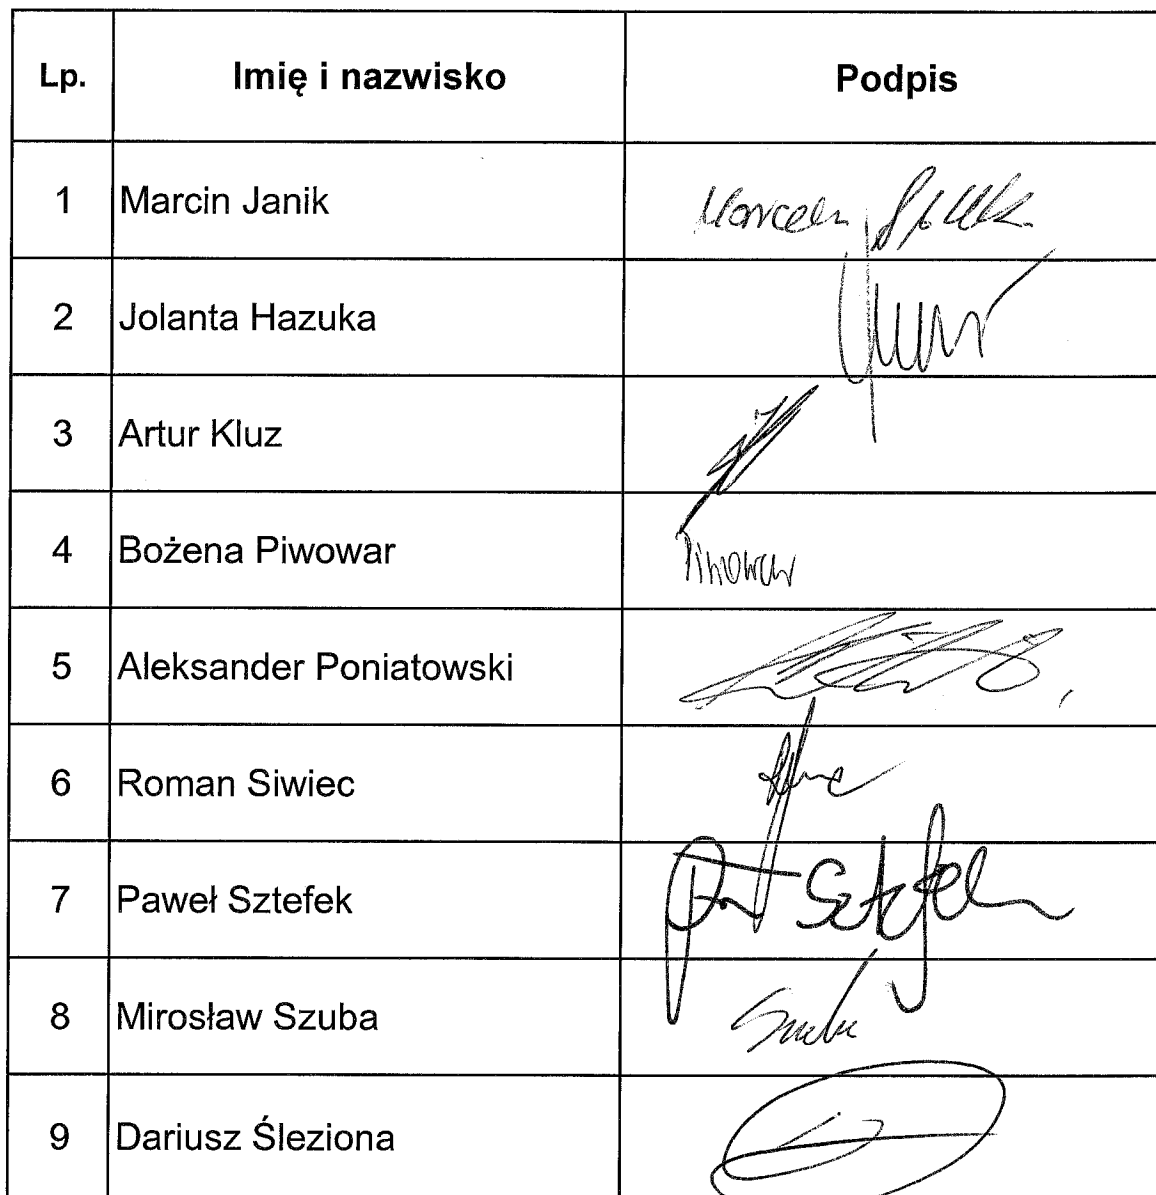 Lp. Imię i nazwisko Podpis
1 Marcin Janik
2 Jolanta Hazuka
3 Artur Kluz
4 Bożena Piwowar Piwowar
5 Aleksander Poniatowski
6 Roman Siwiec
7 Paweł Sztefek
8 Mirosław Szuba Szuba
9 Dariusz Śleziona